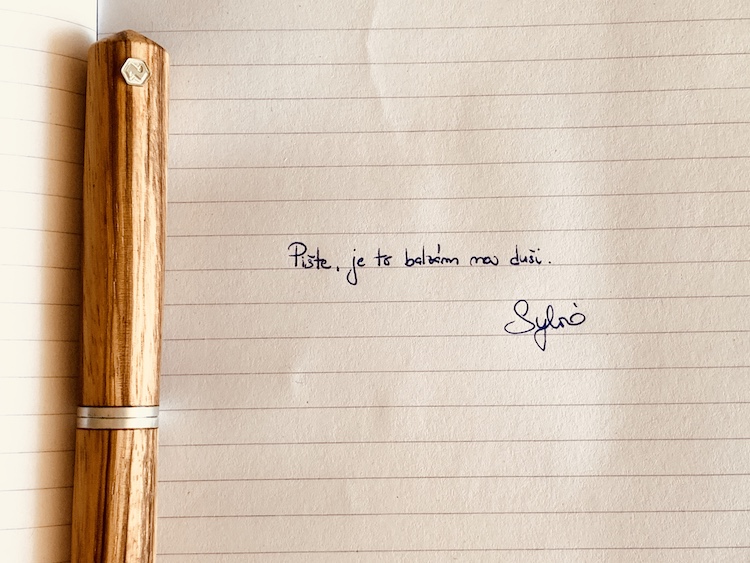 Pište, je to balzám na duši.
Sylvie